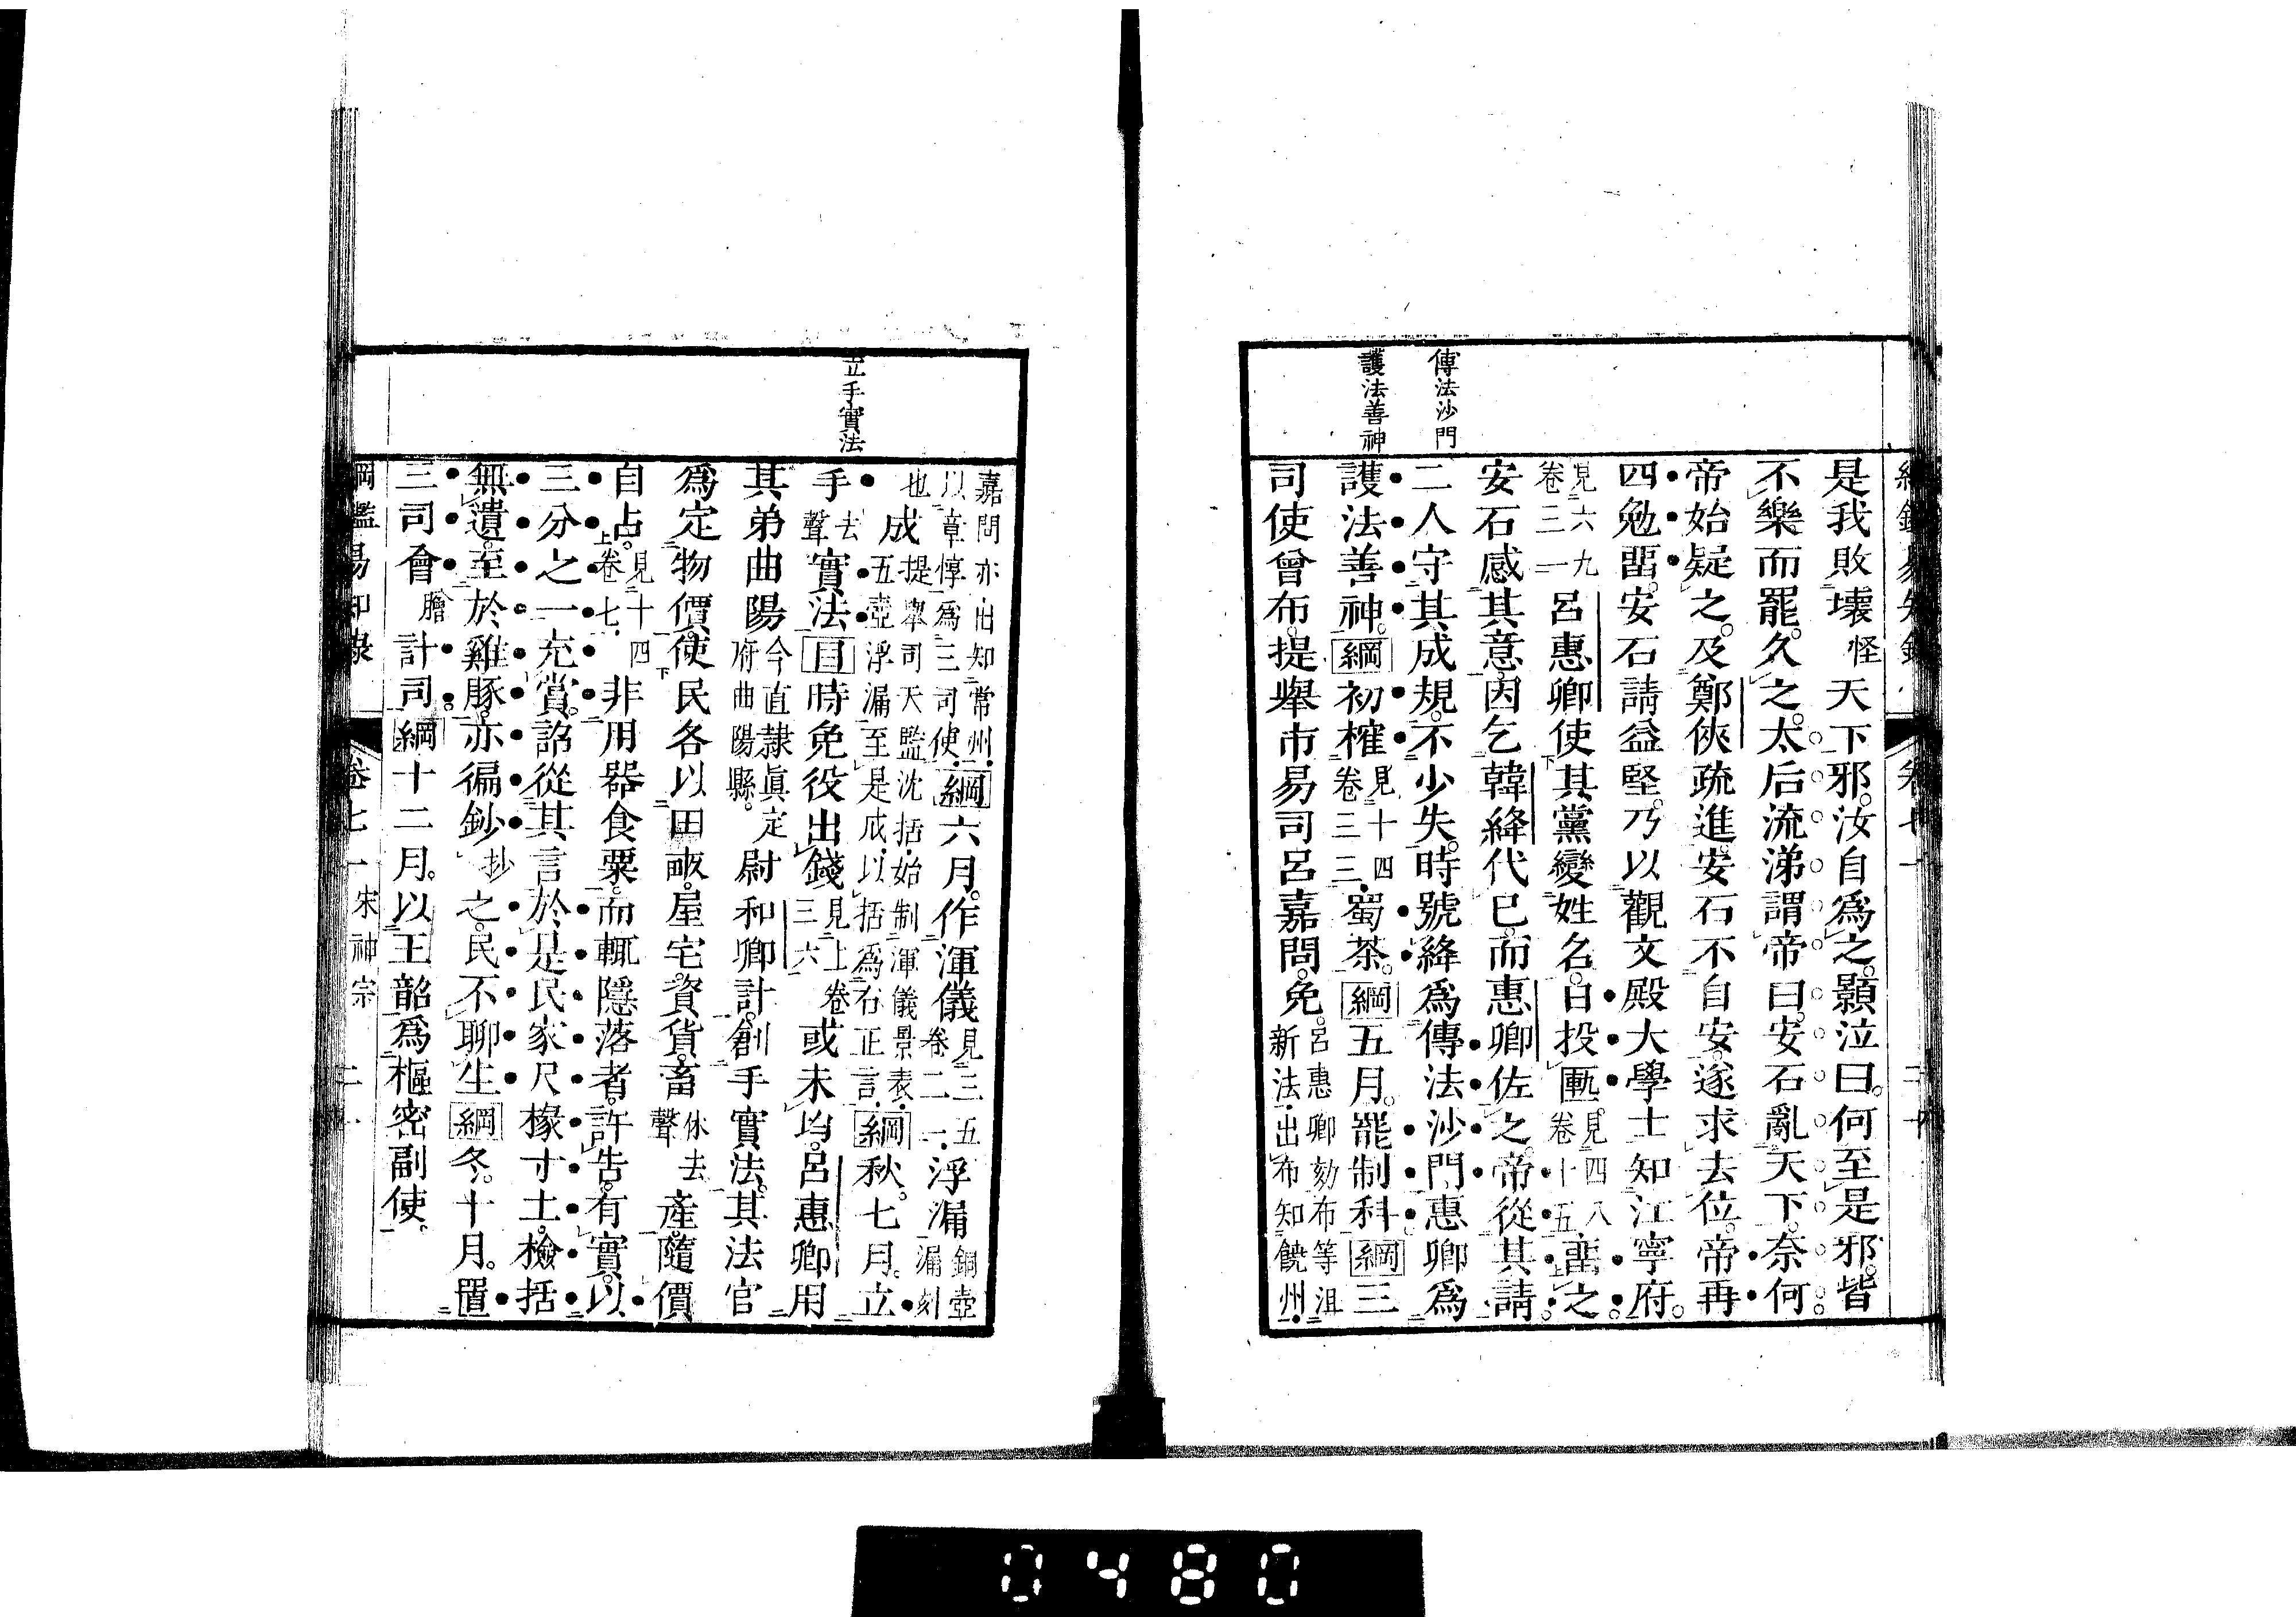 傳法沙門
護法善神
是我敗壞怪天下邪汝自爲之顥泣曰何至是邪皆
不樂而罷久之太后流涕謂帝曰安石亂天下奈何
帝始疑之及鄭俠疏進安石不自安遂求去位帝再
四勉畱安石請益堅乃以觀文殿大學士知江寧府
見六九
卷三一
呂惠卿使其黨變姓名日投匭
見四八
卷十五
畱之
安石感其意因乞韓絳代已而惠卿佐之帝從其請
二人守其成規不少失時號絳爲傳法沙門惠卿爲
護法善神綱初榷
見十四
卷三三
蜀茶綱五月罷制科綱三
司使曾布提舉市易司呂嘉問免
呂惠卿劾布等沮
新法出布知饒州
立手實法
嘉問亦出知常州
以章惇爲三司使
綱六月作渾儀
見三五
卷二一
浮漏
銅壺
漏刻
也
成
提舉司天監沈括始制渾儀景表
五壺浮漏至是成以括爲右正言
綱秋七月立
手
去
聲
實法目時免役出錢
見上卷
三六
或未均呂惠卿用
其弟曲陽
今直隸眞定
府曲陽縣
尉和卿計創手實法其法官
爲定物價使民各以田畝屋宅資貨畜
休去
聲
產隨價
自占
見十四
上卷七
非用器食粟而輒隱落者許告有實以
三分之一充賞詔從其言於是民家尺椽寸土檢括
無遺至於雞豚亦徧鈔抄之民不聊生綱冬十月置
三司會膾計司綱十二月以王韶爲樞密副使
綱鑑易知錄 卷七一 宋神宗 二一